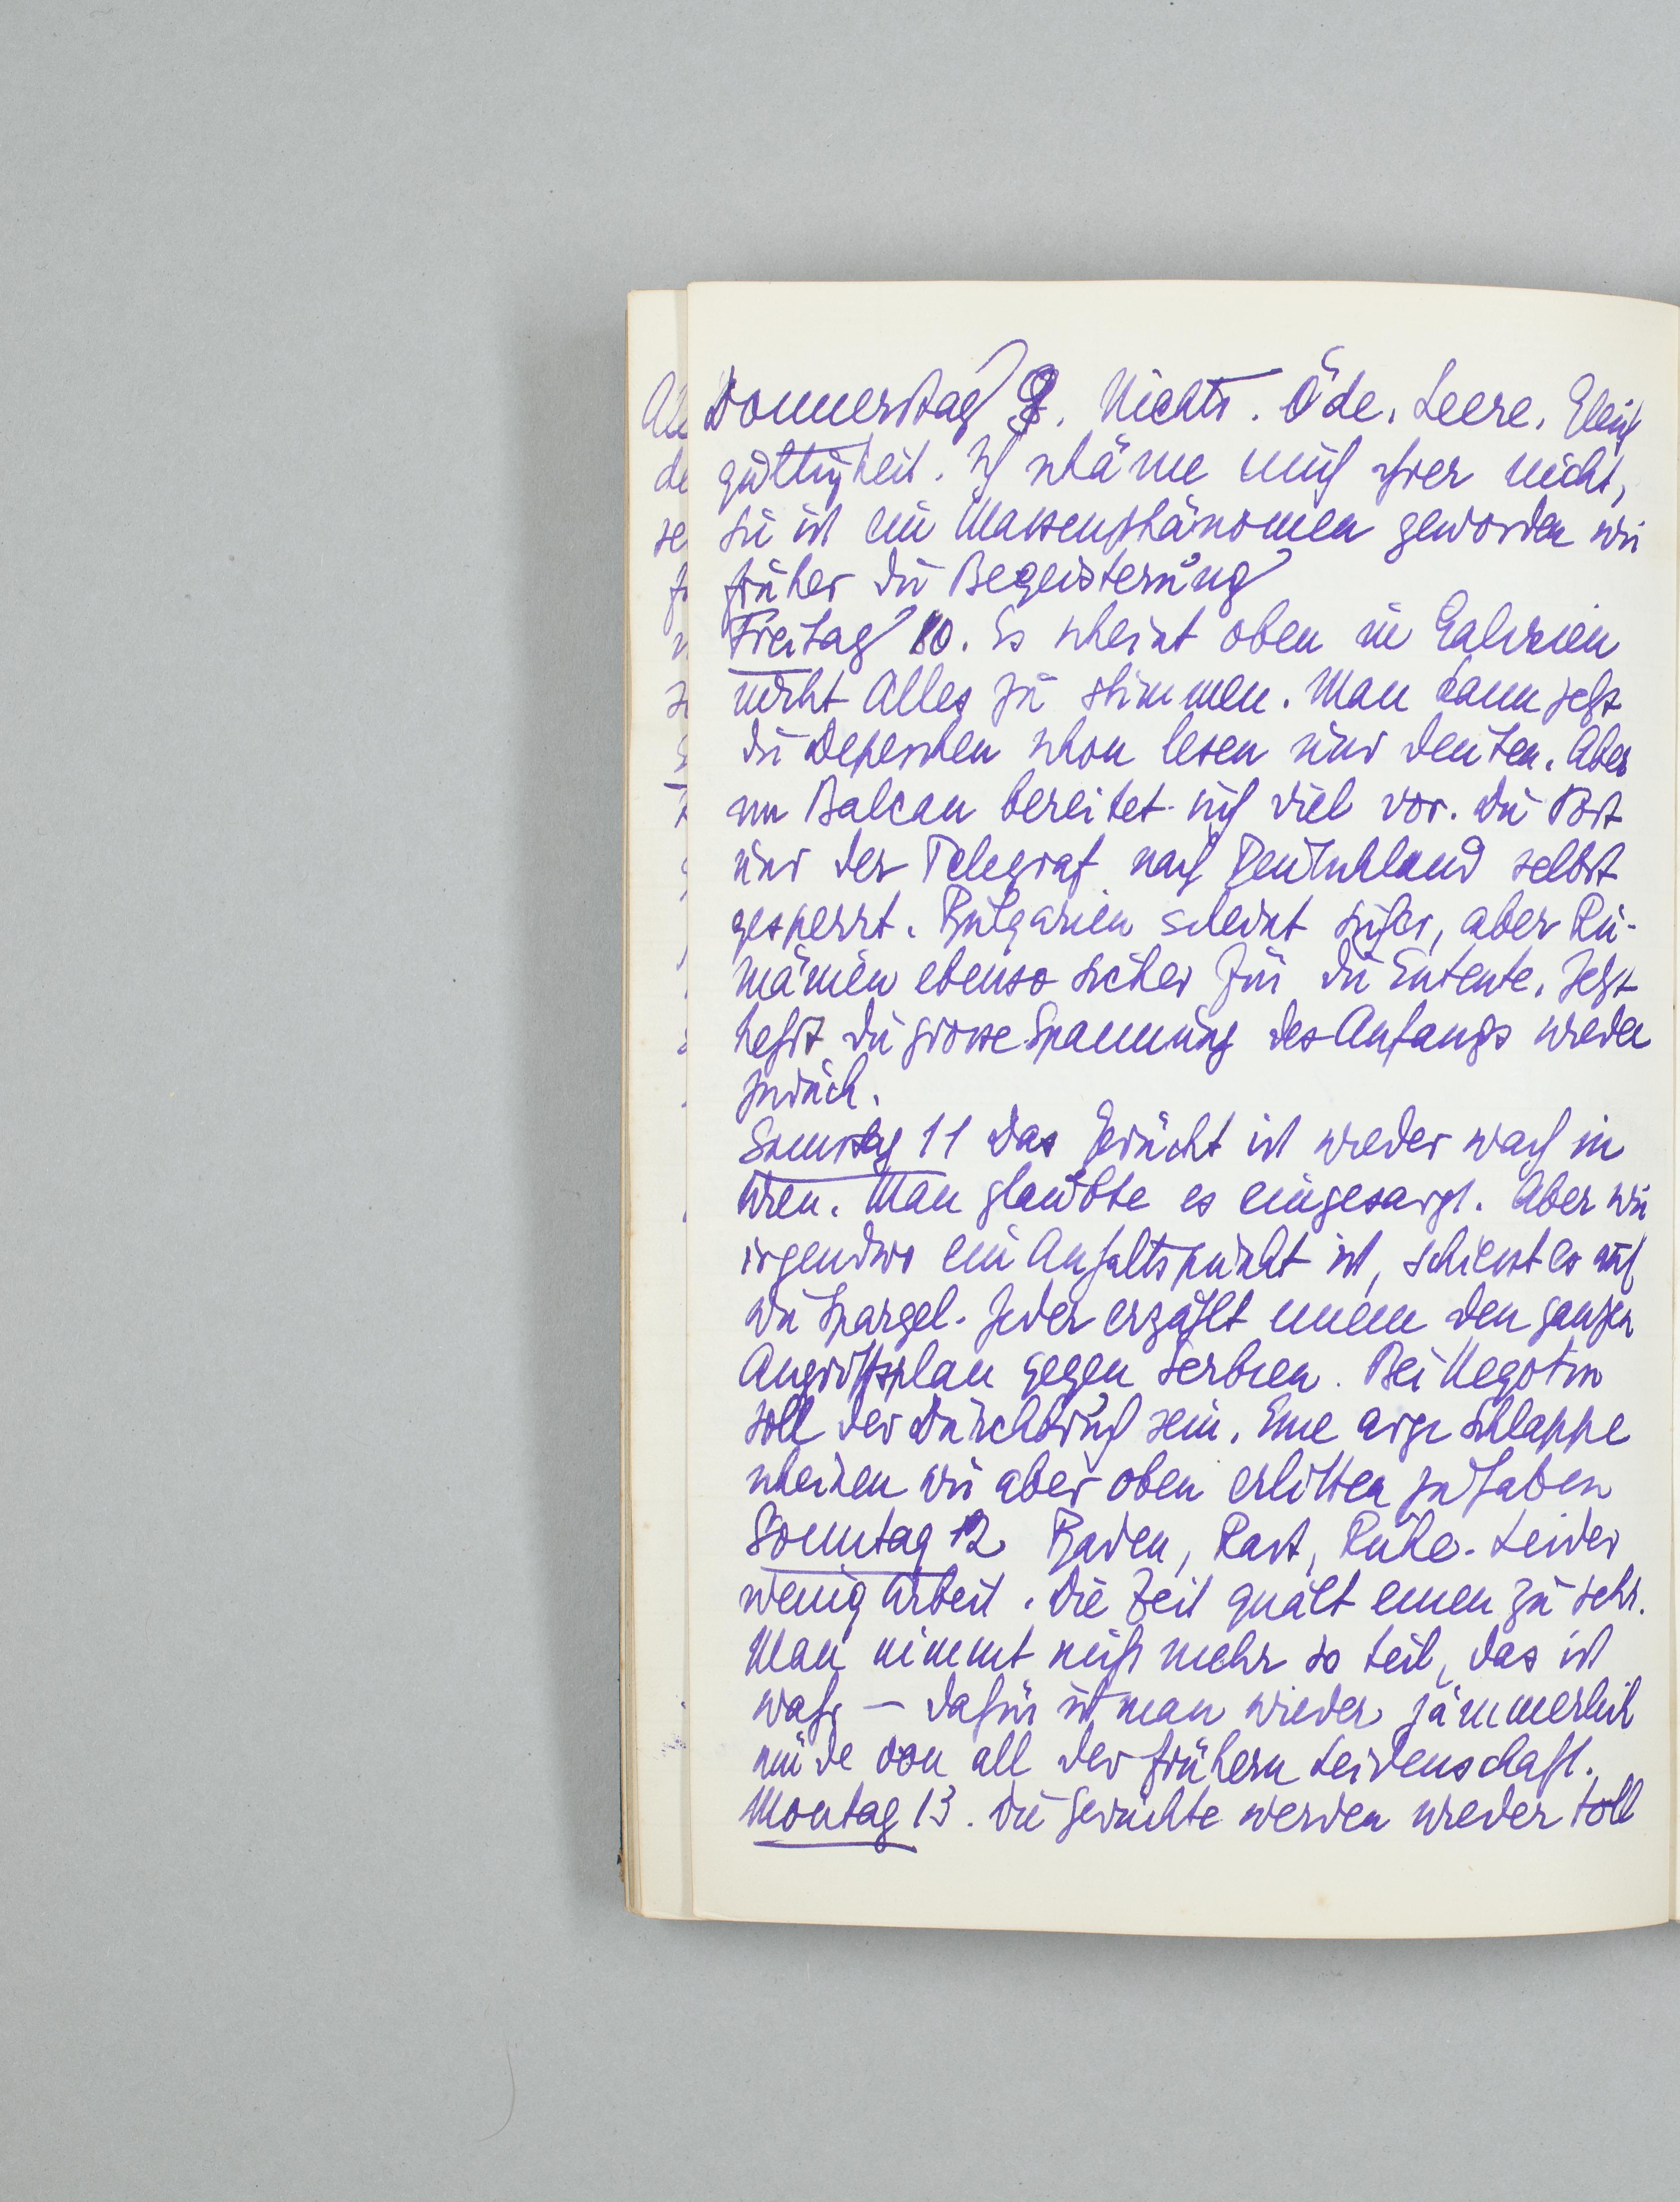 Donnerstag 9. Nichts. Öde, Leere, Gleich
gültigkeit. Ich schäme mich ihrer nicht,
sie ist ein Massenphänomen geworden wie
früher die Begeisterung
Freitag 10. Es scheint oben in Galizien
nicht Alles zu stimmen. Man kann jetzt
die Depeschen schon lesen und deuten. Aber
am Balcan bereitet sich viel vor. Die Post
und der Telegraf nach Deutschland selbst
gesperrt. Bulgarien scheint sicher, aber Ru-
mänien ebenso sicher für die Entente. Jetzt
kehrt die grosse Spannung des Anfangs wieder
zurück.
Samstag 11 Das Gerücht ist wieder wach in
Wien. Man glaubte es eingesargt. Aber wie
irgendwo ein Anhaltspunkt ist, schiesst es auf
wie Spargel. Jeder erzählt einem den ganzen
Angriffsplan gegen Serbien. Bei Negotin
soll der Durchbruch sein. Eine arge Schlappe
scheinen wir aber oben erlitten zu haben
Sonntag 12 Baden, Rast, Ruhe. Leider
wenig Arbeit. Die Zeit quält einen zu sehr.
Man nimmt nicht mehr so teil, das ist
wahr – dafür ist man wieder jämmerlich
müde von all der frühern Leidenschaft.
Montag 13. Die Gerüchte werden wieder toll